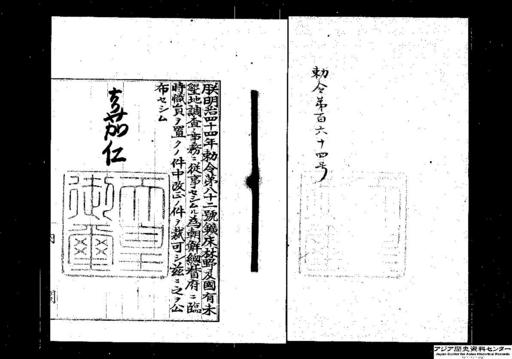 勅令第百六十四号
朕明治四十四年勅令第八十二號鑛床林野及國有未
墾地調査ノ事務ニ從事セシムル爲朝鮮總督府ニ臨
時職員ヲ置クノ件中改正ノ件ヲ裁可シ茲ニ之ヲ公
布セシム
嘉仁
天皇
御璽
内 閣
アジア歴史資料センター
Japan Center for Asian Historical Records